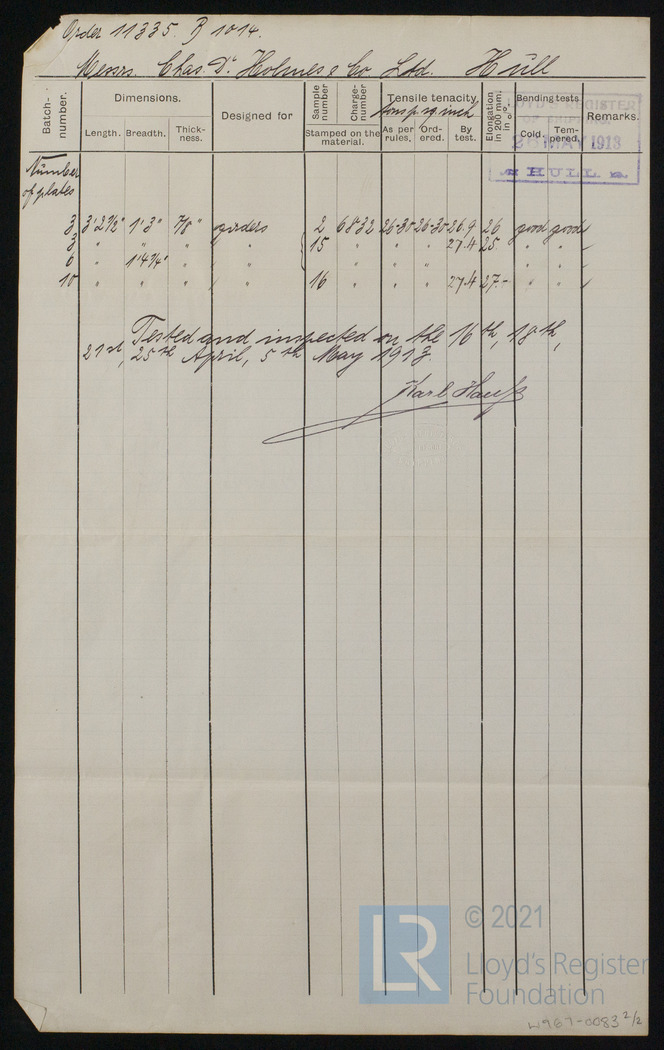 Order 11335. B 1014.
Messrs. Chas. D. Holmes & Co Ltd. Hull
Batch-number. Dimensions. Designed for Sample number Charge-number Tensile tenacity. Elongation in 200 mm: in %. Bending tests Remarks.
tons p. sq. inch
Length. Breadth. Thick-ness. Stamped on the material. As per rules. Ord-ered. By test. Cold. Tem-pered.
LLOYD'S REGISTER
OF SHIPPING
26 MAY 1913
HULL
Number
of plates
3 3' 2½" 1' 3" 7/8" girders 2 6832 26-30 26-30 26.9 26 good good
3 " " " " 15 " " " 27.4 25. " "
6 " 1' 4¼" " " " " " " "
10 " " " " 16 " " " 27.4 27.- " "
Tested and inspected on the 16th, 18th,
21st, 25th April, 5th May 1913.
Karl Hauß
LR
© 2021
Lloyd's Register
Foundation
W967-0083 2/2